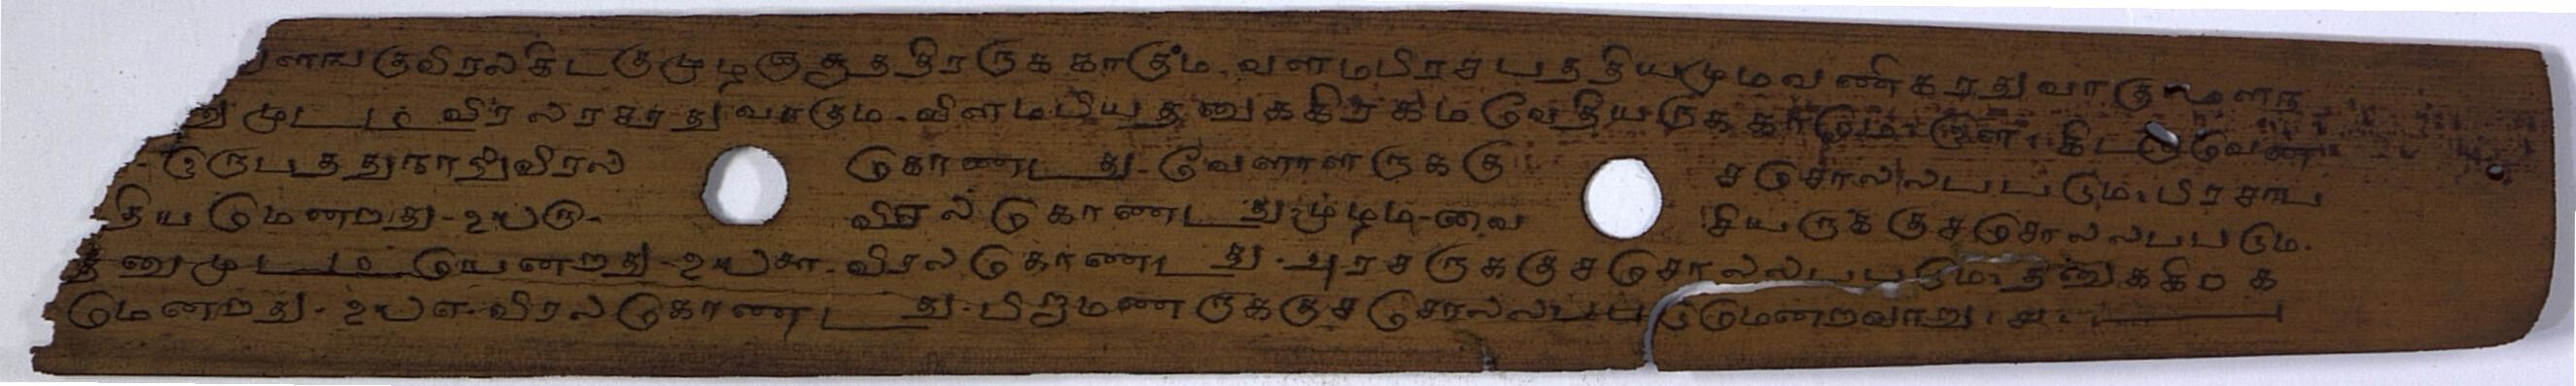 ளாங குவிரல கிடகுமுழஞ சூததிரருககாகும. வளமபிரசாபததியமுமவணிகரதுவாகு
னுமுடடம விரலரசரதுவாகும. விளமபியதனுககிரகம வேதியருககாமே கிட
இருபததுநாலுவிரல கொணடது. வேளாளருககு சசொலலபபடும. பிரசாப
தியமெனறது. உயரு. விரல கொணடதுமுழம. வை சியருககுசசொலலபபடும.
தனுமுடடம யெனறது. உயசா. விரல கொணடது. அரசருககுசசொலலபபடும. தனுககிரக
மெனறது. உயஎ. விரல கொணடது. பிறமணருககுசசொலலபபடுமெனறவாறு.